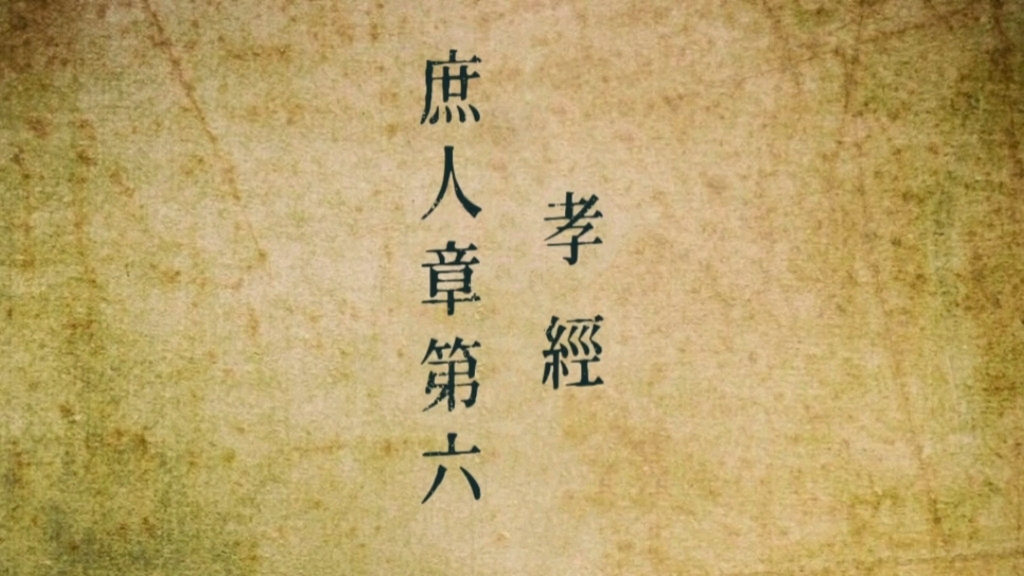 孝經
庶人章第六